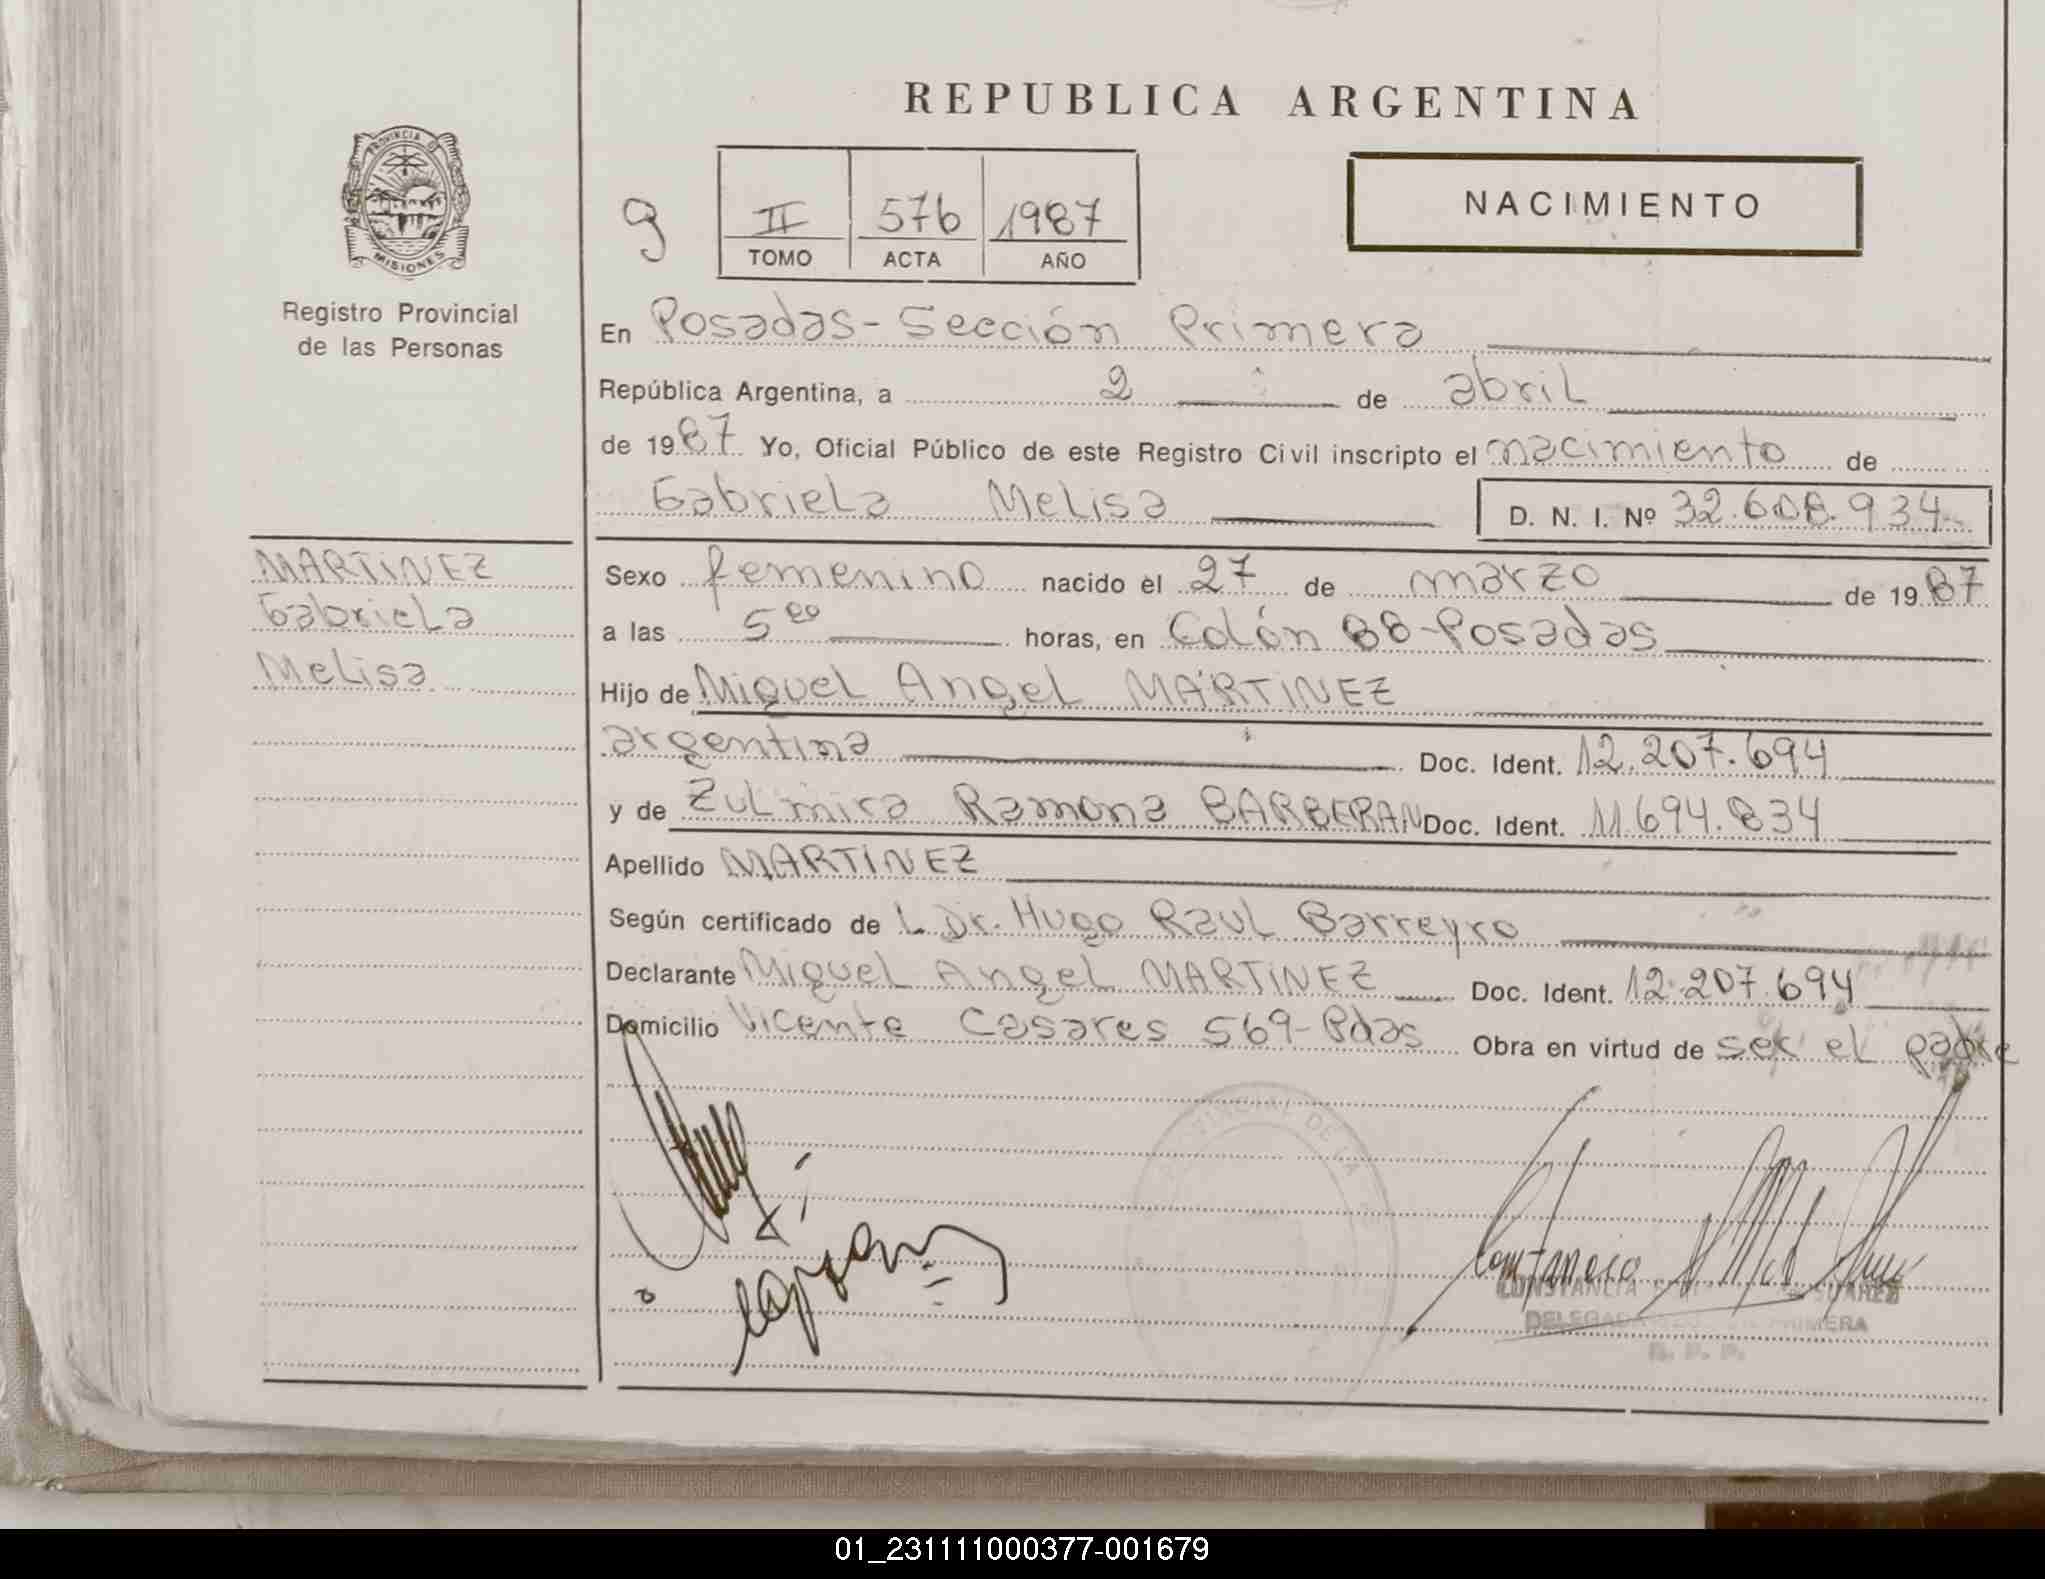 REPUBLICA ARGENTINA
PROVINCIA DE
MISIONES
Registro Provincial
de las Personas
9
II
576
1987
TOMO
ACTA
AÑO
NACIMIENTO
En Posadas - Sección Primera
República Argentina, a 2 de abril
de 1987 Yo, Oficial Público de este Registro Civil inscripto el nacimiento de
Gabriela Melisa D. N. I. Nº 32.608.934
MARTINEZ
Gabriela
Melisa
Sexo femenino nacido el 27 de marzo de 1987
a las 5 00 horas, en Colón 88 - Posadas
Hijo de Miguel Angel MARTINEZ
argentina Doc. Ident. 12.207.694
y de Zulmira Ramona BARBERAN Doc. Ident. 11.694.834
Apellido MARTINEZ
Según certificado de L Dr. Hugo Raul Barreyro
Declarante Miguel Angel MARTINEZ Doc. Ident. 12.207.694
Domicilio Vicente Casares 569 - Pdas Obra en virtud de ser el padre
PROVINCIAL DE LA
CONSTANCIA SUAREZ
PRIMERA
R. P. P.
01_231111000377-001679